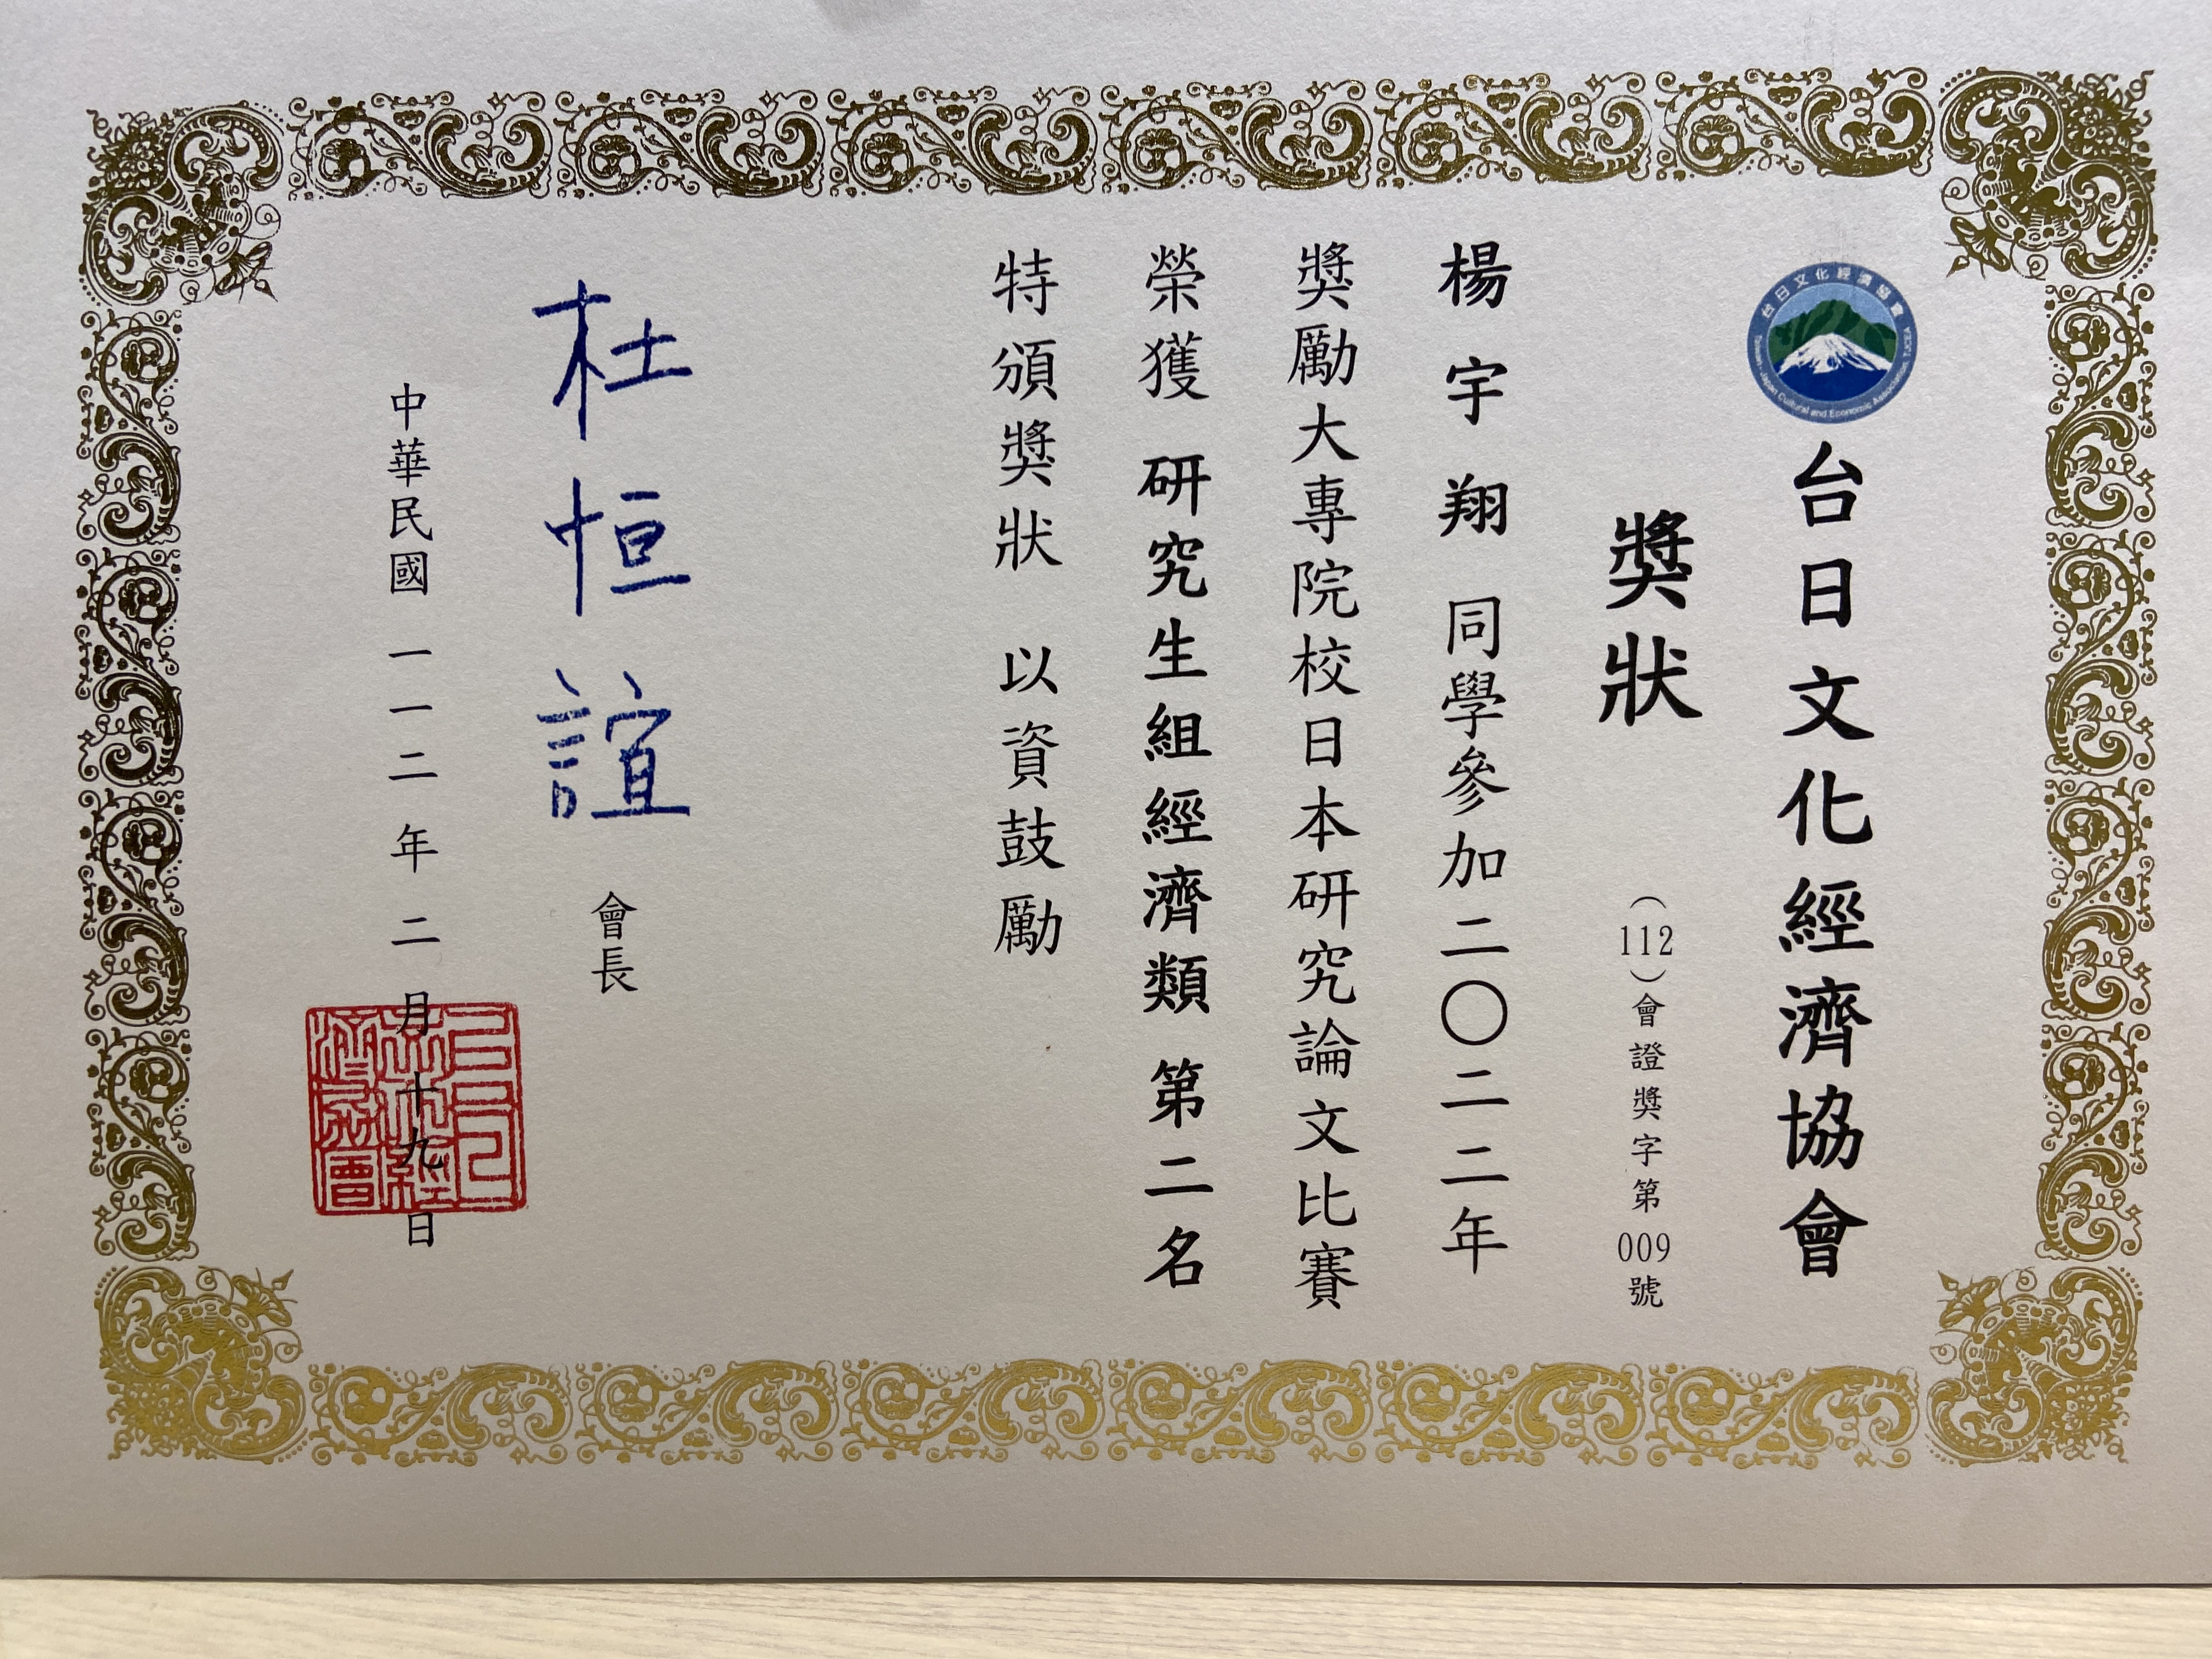 台日文化經濟協會
Taiwan-Japan Cultural and Economic Association, TJCEA
台日文化經濟協會
獎狀
（112）會證獎字第009號
楊宇翔 同學參加二〇二二年
獎勵大專院校日本研究論文比賽
榮獲 研究生組經濟類 第二名
特頒獎狀 以資鼓勵
會長
杜恒誼
中華民國 一一二 年 二 月 十九 日
台日文化經濟協會